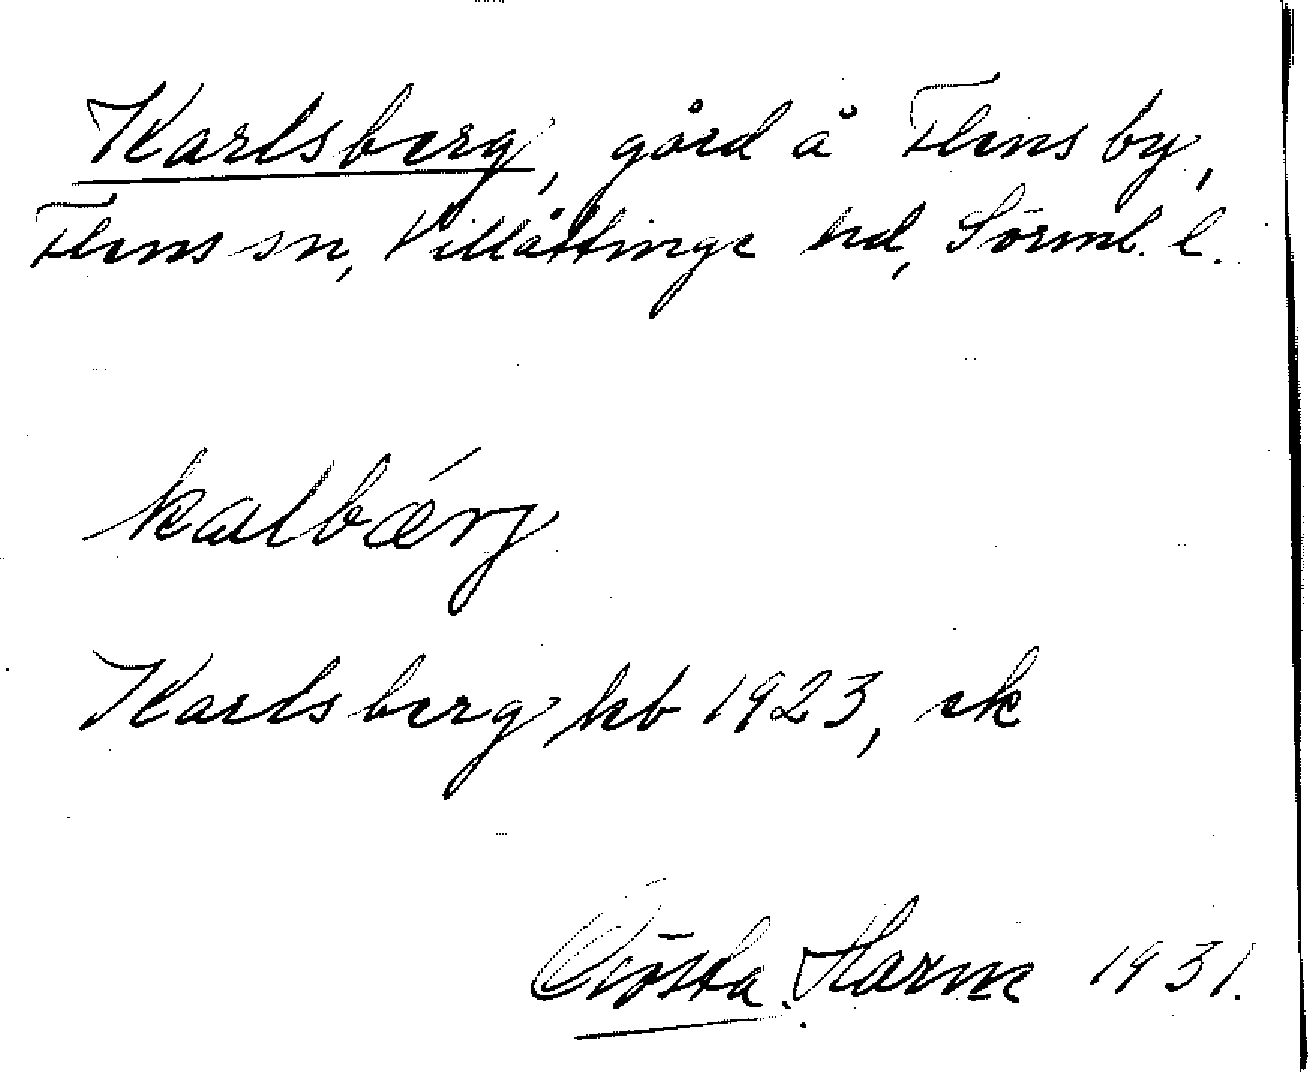 Karlsberg, gård å Flens by,
Flens sn, Villåttinge hd, Sörml. l.
kalbǽrj
Karlsberg hb 1923, ek
Gösta Harne 1931.